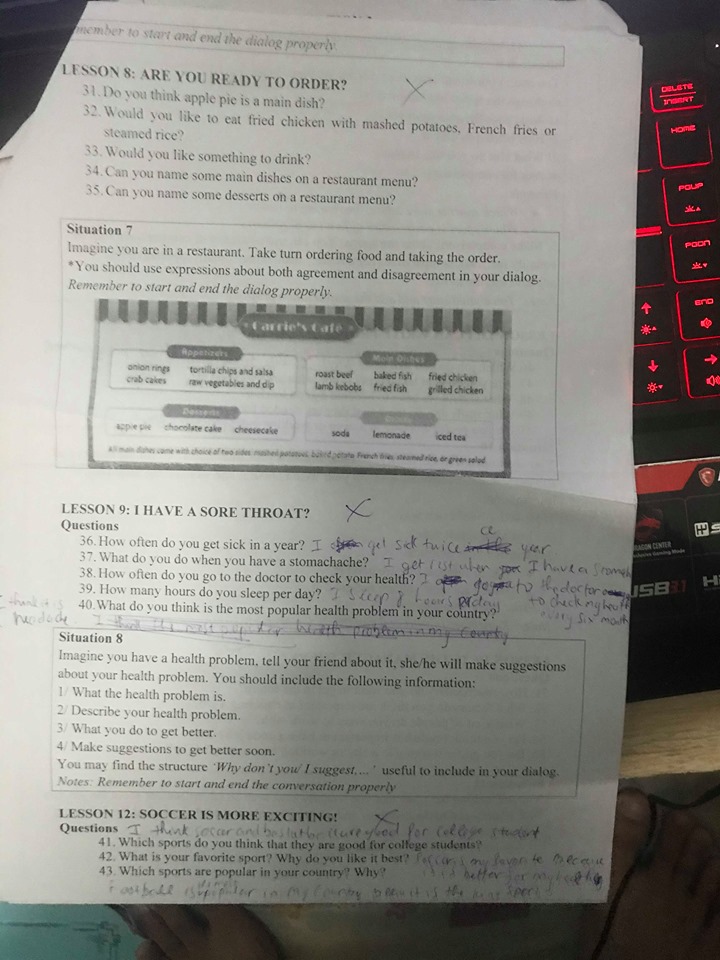 member to start and end the dialog properly.
LESSON 8: ARE YOU READY TO ORDER? X
31. Do you think apple pie is a main dish?
32. Would you like to eat fried chicken with mashed potatoes, French fries or
steamed rice?
33. Would you like something to drink?
34. Can you name some main dishes on a restaurant menu?
35. Can you name some desserts on a restaurant menu?
Situation 7
Imagine you are in a restaurant. Take turn ordering food and taking the order.
*You should use expressions about both agreement and disagreement in your dialog.
Remember to start and end the dialog properly.
Carrie's Cafe
Appetizers
onion rings tortilla chips and salsa
crab cakes raw vegetables and dip
Main Dishes
roast beef baked fish fried chicken
lamb kebobs fried fish grilled chicken
Desserts
apple pie chocolate cake cheesecake
Drinks
soda lemonade iced tea
All main dishes come with choice of two sides: mashed potatoes, baked potato, French fries, steamed rice, or green salad
LESSON 9: I HAVE A SORE THROAT? X
Questions
36. How often do you get sick in a year? I get sick twice year
37. What do you do when you have a stomachache? I get rest when I have a stomach
38. How often do you go to the doctor to check your health? I go to the doctor
39. How many hours do you sleep per day? I sleep 8 hours per day to check my health
40. What do you think is the most popular health problem in your country? every six month
I think it is
headache
I think the most popular health problem in my country
Situation 8
Imagine you have a health problem, tell your friend about it, she/he will make suggestions
about your health problem. You should include the following information:
1/ What the health problem is.
2/ Describe your health problem.
3/ What you do to get better.
4/ Make suggestions to get better soon.
You may find the structure 'Why don't you/ I suggest....' useful to include in your dialog.
Notes: Remember to start and end the conversation properly
LESSON 12: SOCCER IS MORE EXCITING! X
Questions I think soccer and are good for college student
41. Which sports do you think that they are good for college students?
42. What is your favorite sport? Why do you like it best? my favorite because
43. Which sports are popular in your country? Why? it is better for my
Football is popular in my country it is the
DELETE
INSERT
HOME
PGUP
PGDN
END
DRAGON CENTER
USB3.1